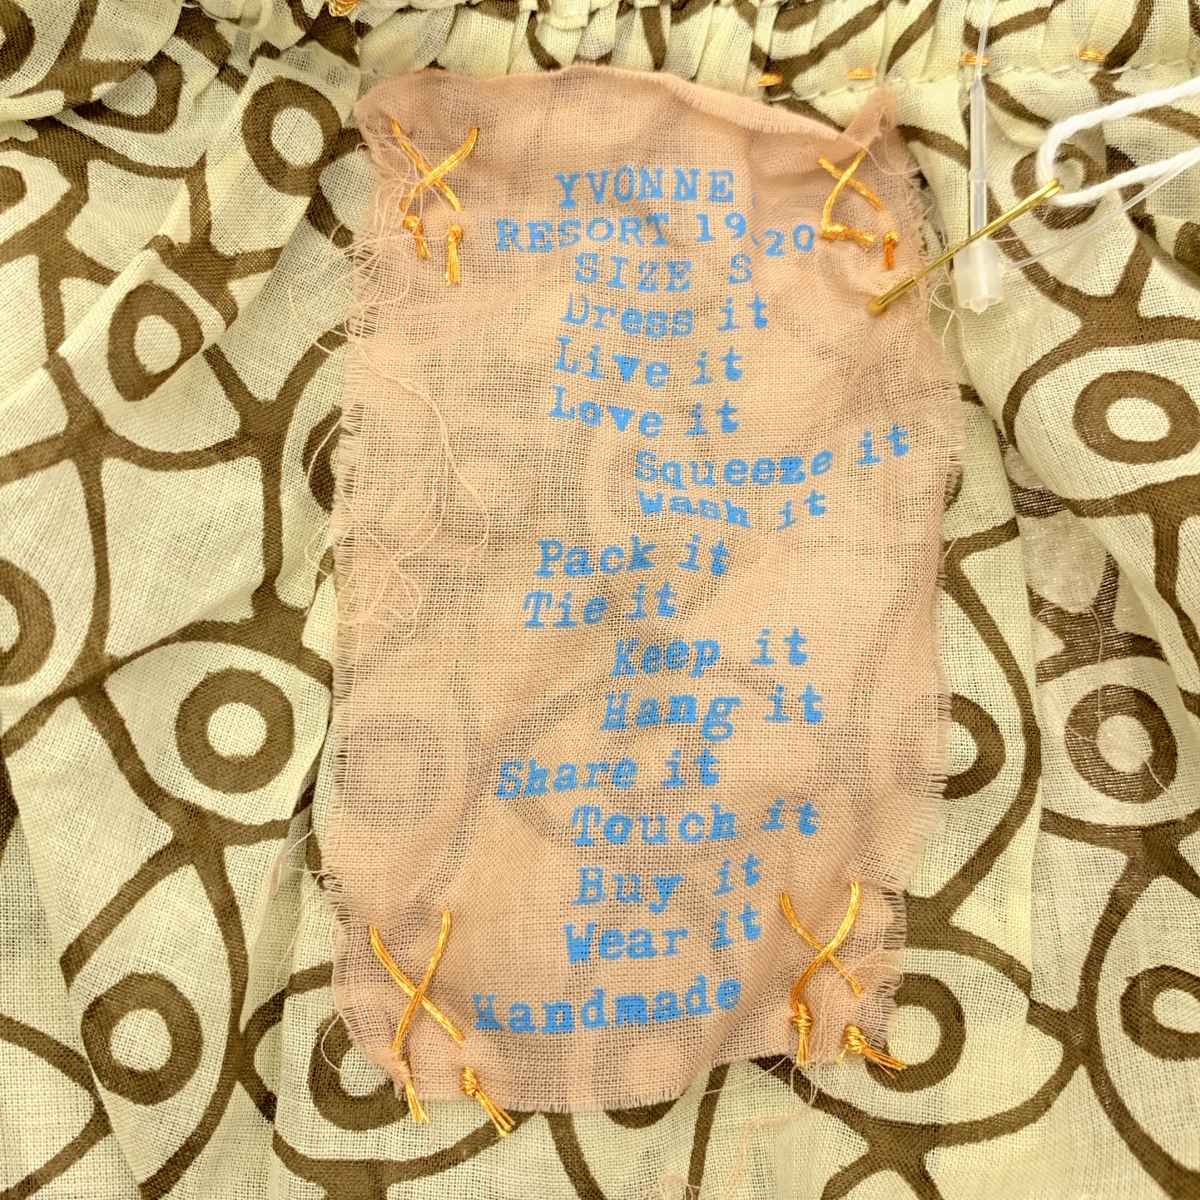 YVONNE
RESORT 19 20
SIZE S
Dress it
Live it
Love it
Squeeze it
Wash it
Pack it
Tie it
Keep it
Hang it
Share it
Touch it
Buy it
Wear it
Handmade